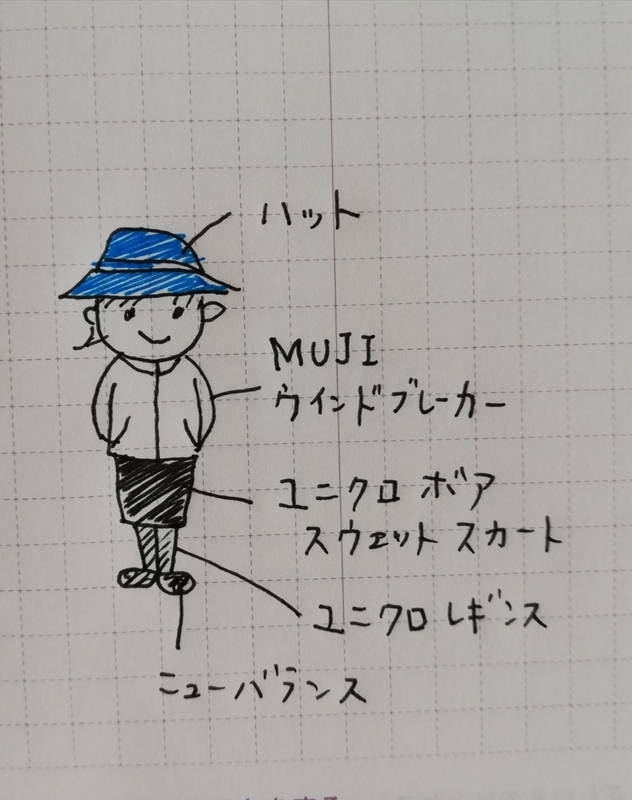 ハット
MUJI
ウインドブレーカー
ユニクロ ボア
スウェット スカート
ユニクロ レギンス
ニューバランス